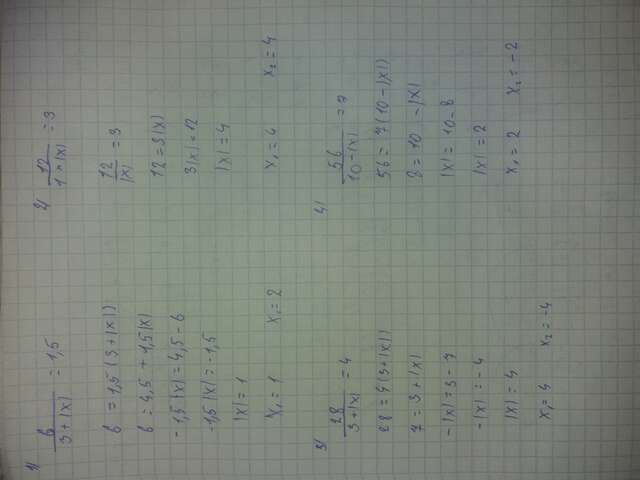 1) 6/(3+|x|) = 1,5
6 = 1,5(3+|x|)
6 = 4,5 + 1,5|x|
-1,5|x| = 4,5 - 6
-1,5|x| = -1,5
|x| = 1
x₁ = 1 x₂ = 2
2) 12/(1*|x|) = 3
12/|x| = 3
12 = 3|x|
3|x| = 12
|x| = 4
x₁ = 4 x₂ = 4
3) 28/(3+|x|) = 4
28 = 4(3+|x|)
7 = 3+|x|
-|x| = 3-7
-|x| = -4
|x| = 4
x₁ = 4 x₂ = -4
4) 56/(10-|x|) = 7
56 = 7(10-|x|)
8 = 10 -|x|
|x| = 10-8
|x| = 2
x₁ = 2 x₂ = -2